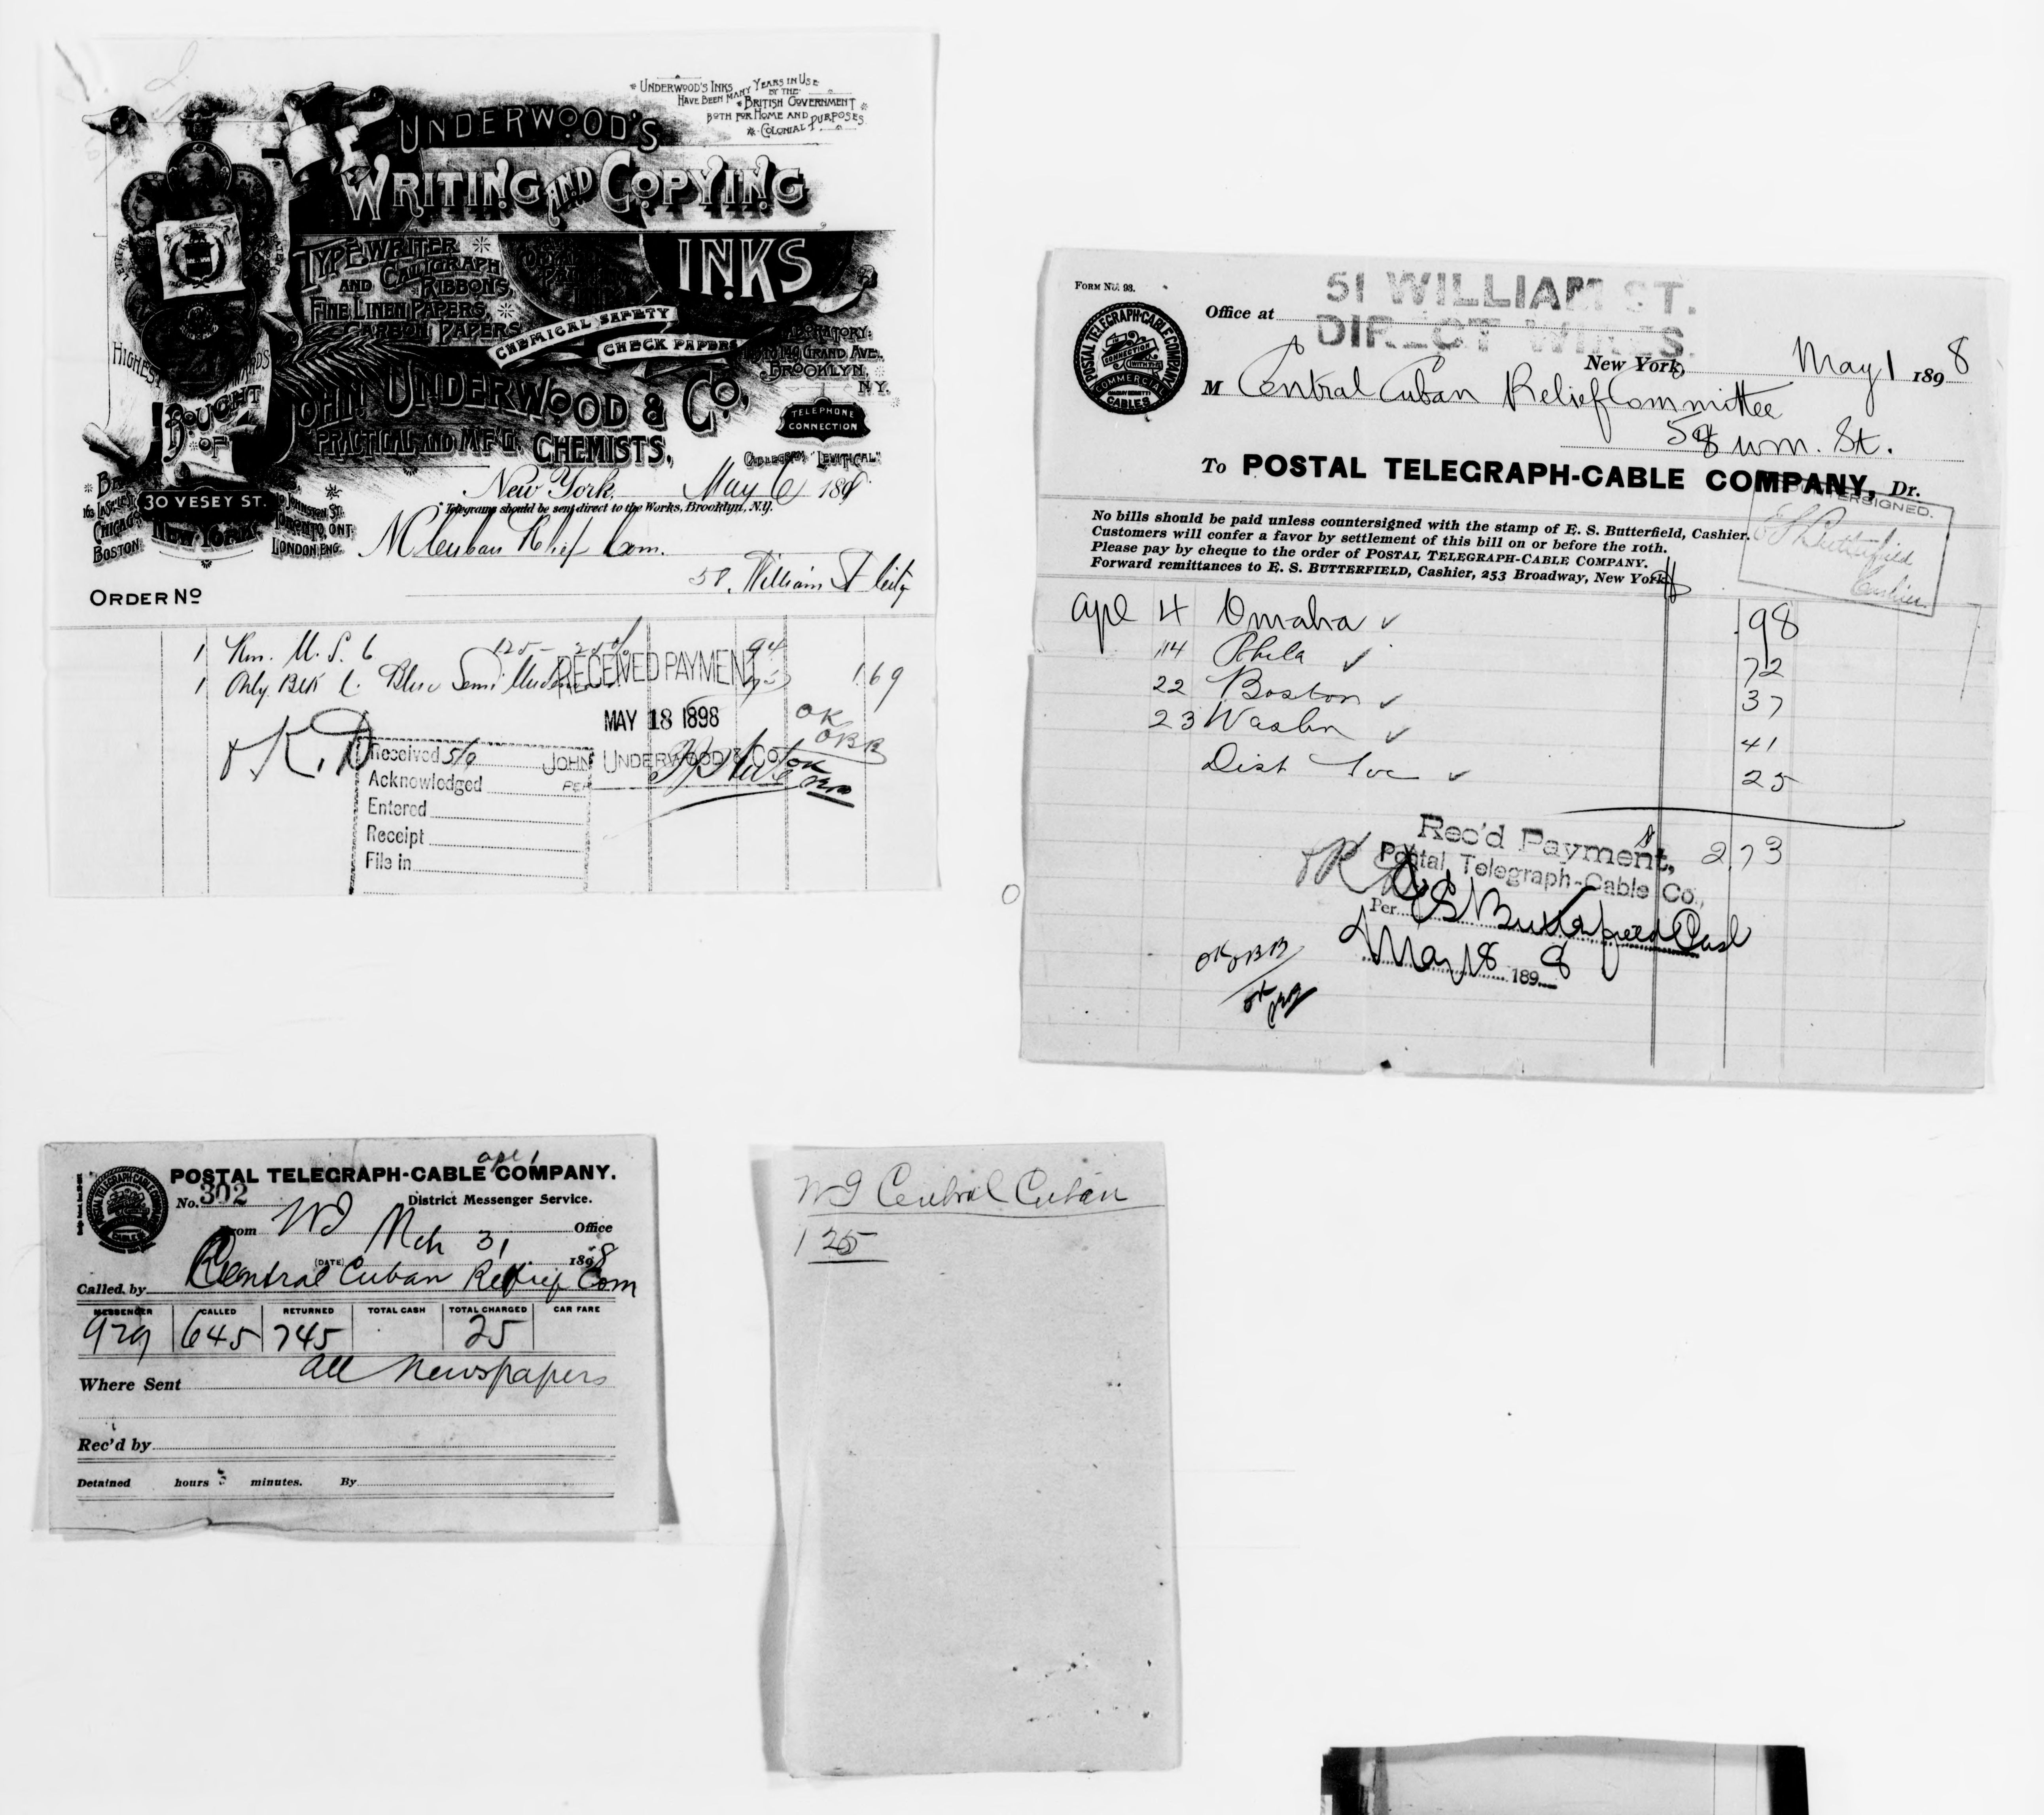 UNDERWOOD'S INKS
HAVE BEEN MANY YEARS IN USE
BY THE
BRITISH GOVERNMENT
BOTH FOR HOME AND
COLONIAL PURPOSES
UNDERWOOD'S
WRITING AND COPYING
INKS
TYPEWRITER
AND CALIGRAPH
RIBBONS,
FINE LINEN PAPERS,
CARBON PAPERS
CHEMICAL SAFETY
CHECK PAPERS
GRAND AVE.,
BROOKLYN,
N.Y.
HIGHEST AWARDS
BOUGHT
OF
JOHN UNDERWOOD & CO.,
PRACTICAL AND M'F'G. CHEMISTS,
TELEPHONE
CONNECTION
CABLEGRAM, "LEVITICAL"
30 VESEY ST.
NEW YORK.
CHICAGO
BOSTON
JOHNSTON ST.
TORONTO, ONT.
LONDON, ENG.
New York, May 6 189
Telegrams should be sent direct to the Works, Brooklyn, N.Y.
M Cuban Relief Com.
58. William St City
ORDER NO
1 Rm. M. S. 6 125- 25% 94
1 Only Blk C. Blue Semi 75 1.69
RECEIVED PAYMENT
MAY 18 1898
JOHN UNDERWOOD & CO.
PER
OK
OBB
Received 5/6
Acknowledged
Entered
Receipt
File in
FORM No. 93.
Office at
51 WILLIAM ST.
DIRECT WIRES.
POSTAL TELEGRAPH-CABLE COMPANY
COMMERCIAL
CABLES
New York, May 1 1898
M Central Cuban Relief Committee
58 Wm. St.
To POSTAL TELEGRAPH-CABLE COMPANY, Dr.
COUNTERSIGNED.
E S Butterfield
Cashier.
No bills should be paid unless countersigned with the stamp of E. S. Butterfield, Cashier.
Customers will confer a favor by settlement of this bill on or before the 10th.
Please pay by cheque to the order of POSTAL TELEGRAPH-CABLE COMPANY.
Forward remittances to E. S. BUTTERFIELD, Cashier, 253 Broadway, New York.
Apl 4 Omaha ✓ .98
14 Phila ✓ 72
22 Boston ✓ 37
23 Washn ✓ 41
Dist Svc ✓ 25
2.73
Rec'd Payment,
Postal Telegraph-Cable Co.,
Per E S Butterfield Cash
May 18 1898
OK OBB
OK
POSTAL TELEGRAPH-CABLE COMPANY.
apl 1
No. 302
District Messenger Service.
From WI Office
Mch 31 1898
(DATE)
Called by Central Cuban Relief Com
MESSENGER CALLED RETURNED TOTAL CASH TOTAL CHARGED CAR FARE
979 645 745 25
Where Sent all Newspapers
Rec'd by
Detained hours minutes. By
WI Central Cuban
1 25